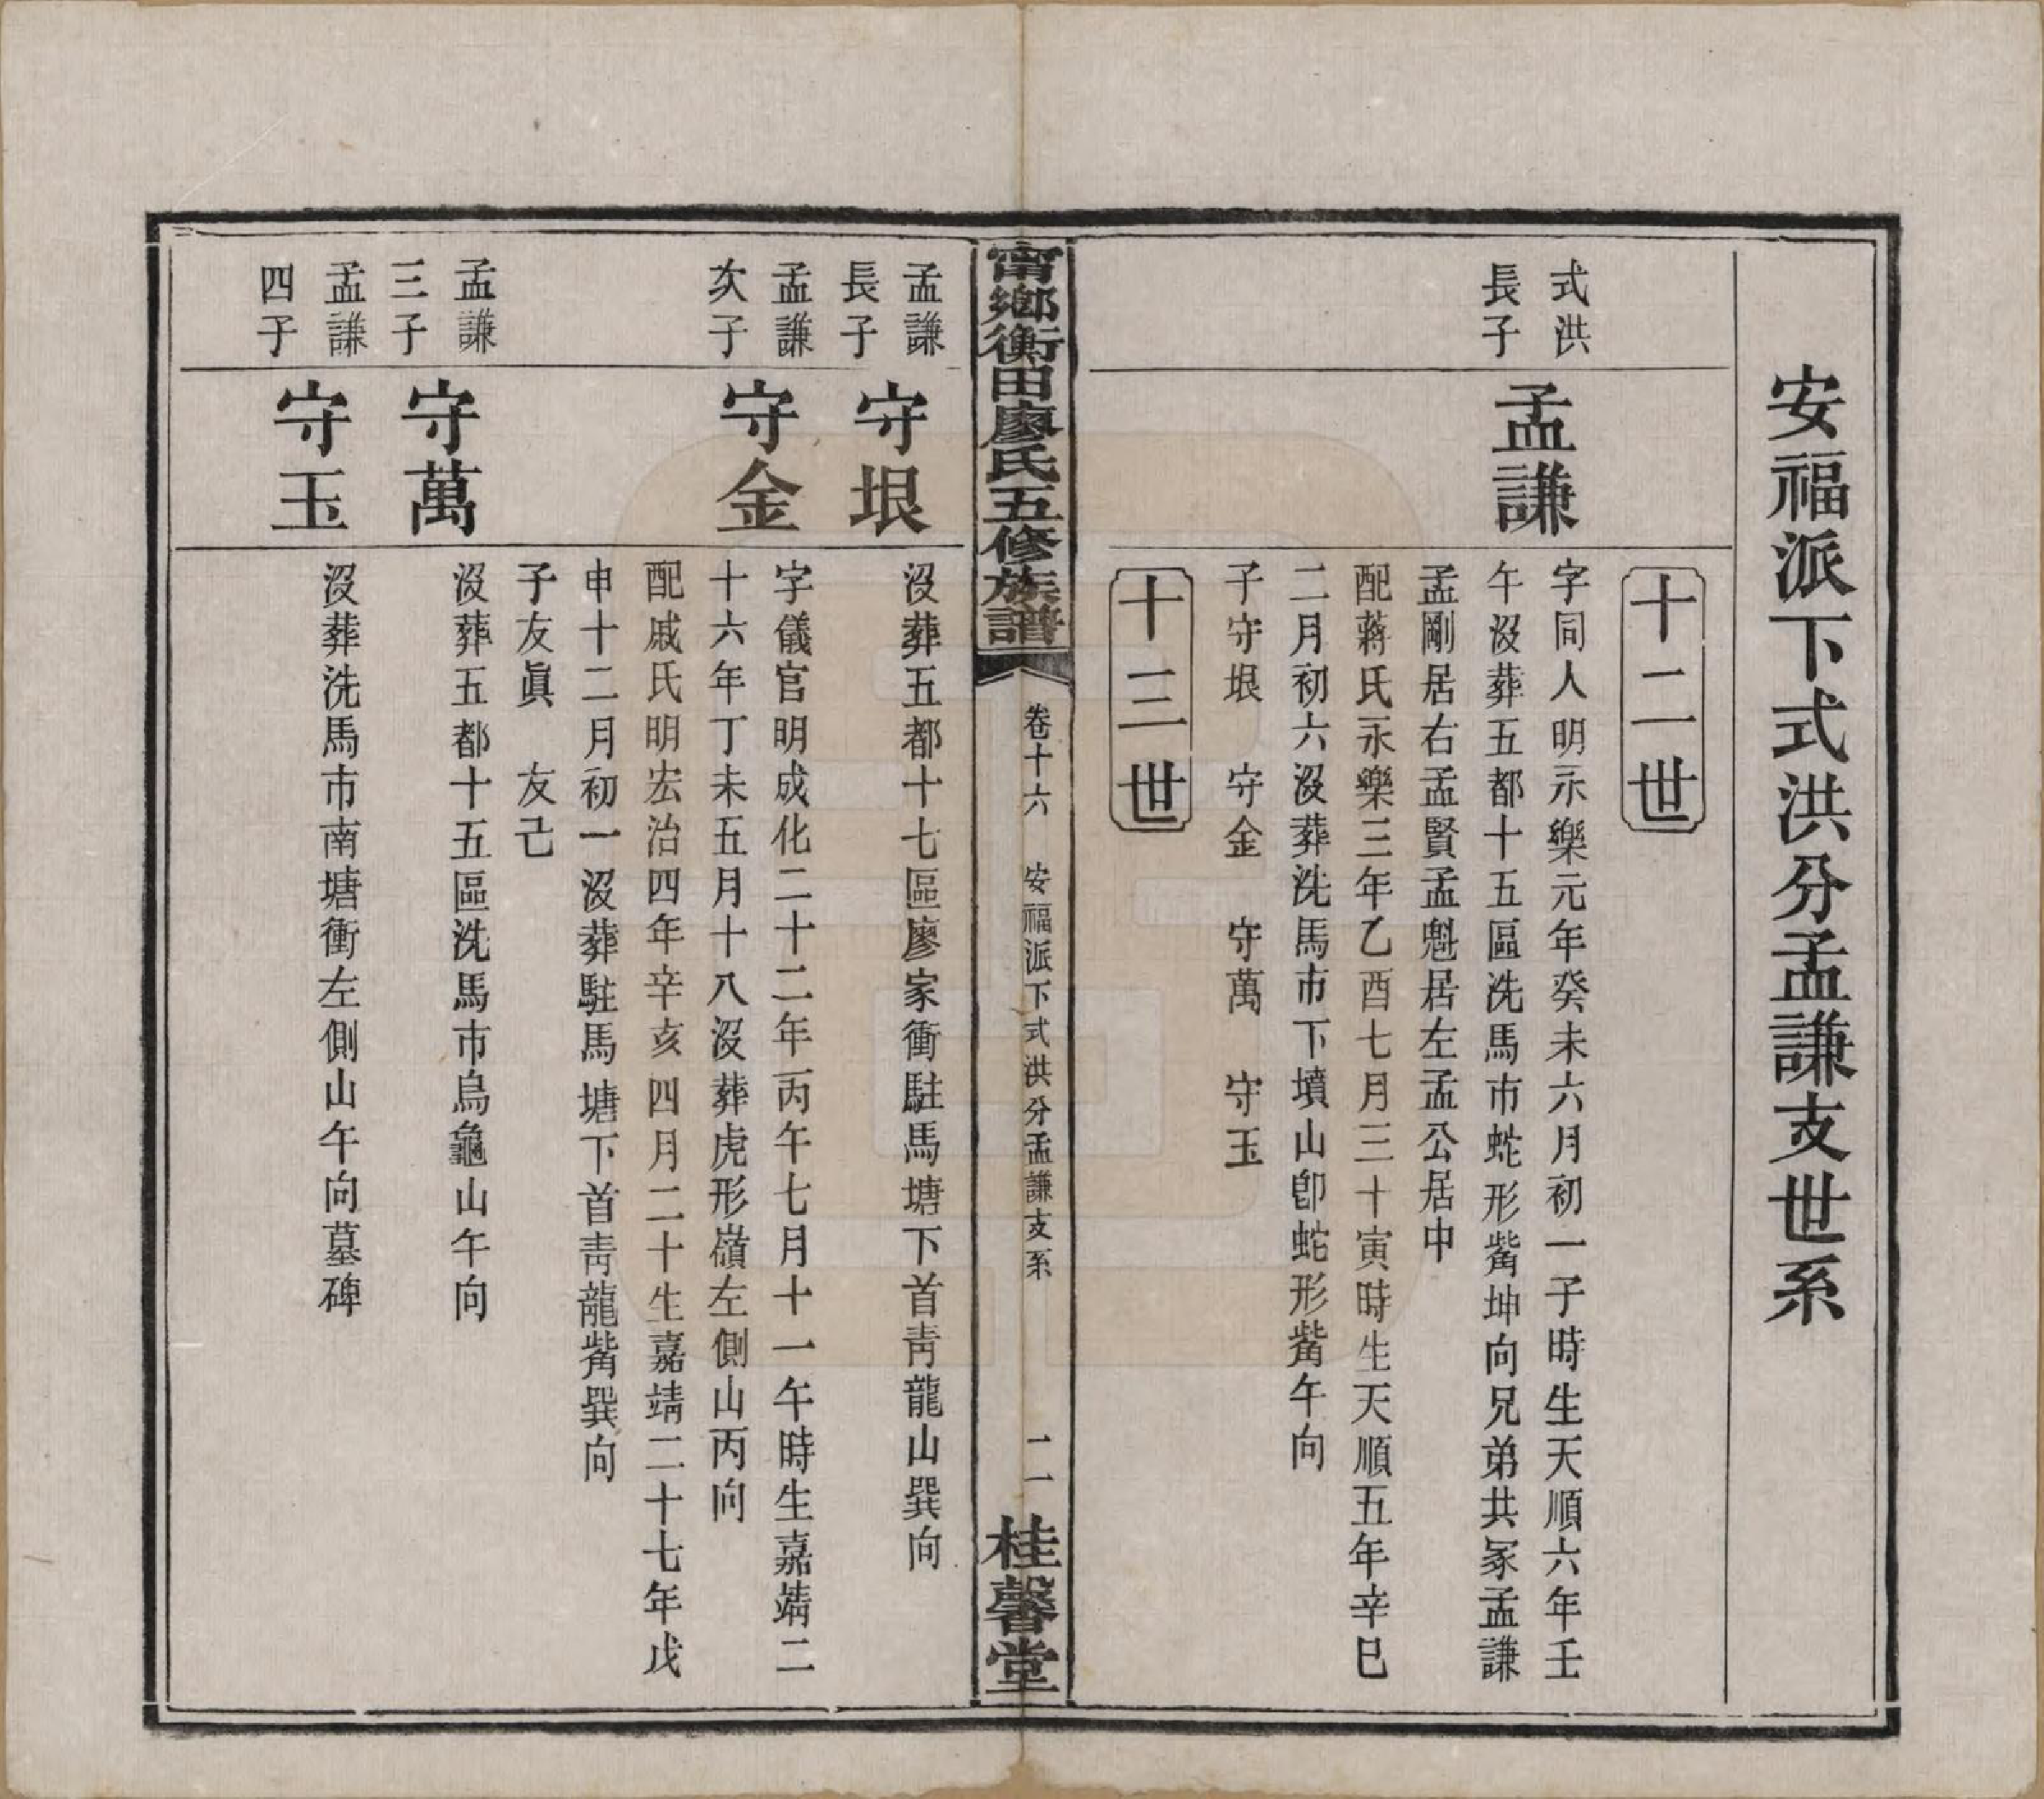 安福派下式洪分孟謙支世系
十二世
式洪
長子
孟謙
字同人明永樂元年癸未六月初一子時生天順六年壬
午沒葬五都十五區洗馬市蛇形觜坤向兄弟共冢孟謙
孟剛居右孟賢孟魁居左孟公居中
配蔣氏永樂三年乙酉七月三十寅時生天順五年辛巳
二月初六沒葬洗馬市下墳山卽蛇形觜午向
子守垠　守金　守萬　守玉
十三世
甯鄉衡田廖氏五修族譜
卷十六　安福派下式洪分孟謙支系
二
桂馨堂
孟謙
長子
守垠
沒葬五都十七區廖家衝駐馬塘下首靑龍山巽向
孟謙
次子
守金
字儀官明成化二十二年丙午七月十一午時生嘉靖二
十六年丁未五月十八沒葬虎形嶺左側山丙向
配戚氏明宏治四年辛亥四月二十生嘉靖二十七年戊
申十二月初一沒葬駐馬塘下首靑龍觜巽向
子友眞　友己
孟謙
三子
守萬
沒葬五都十五區洗馬市烏龜山午向
孟謙
四子
守玉
沒葬洗馬市南塘衝左側山午向墓碑